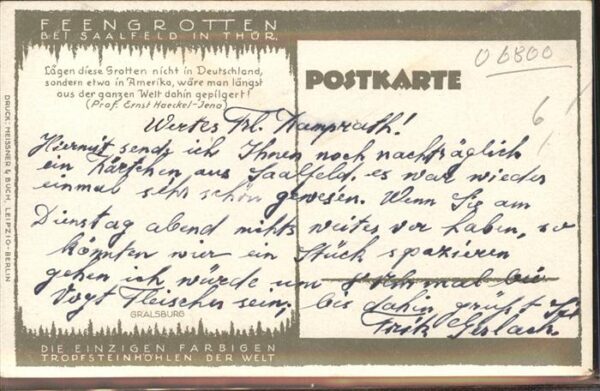 FEENGROTTEN
BEI SAALFELD IN THÜR.
Lägen diese Grotten nicht in Deutschland,
sondern etwa in Amerika, wäre man längst
aus der ganzen Welt dahin gepilgert!
(Prof. Ernst Haeckel-Jena)
POSTKARTE
06800
6
DRUCK: MEISSNER & BUCH, LEIPZIG-BERLIN
Wertes Frl. Kamprath!
Hiermit sende ich Ihnen noch nachträglich
ein Kärtchen aus Saalfeld, es war wieder
einmal sehr schön gewesen. Wenn Sie am
Dienstag abend nichts weites vor haben, so
könnten wier ein Stück spazieren
gehen ich würde um 8 Uhr mal bei
Vogt Fleischer sein, bis dahin grüßt Sie
Fritz Gerlach.
GRALSBURG
DIE EINZIGEN FARBIGEN
TROPFSTEINHÖHLEN DER WELT